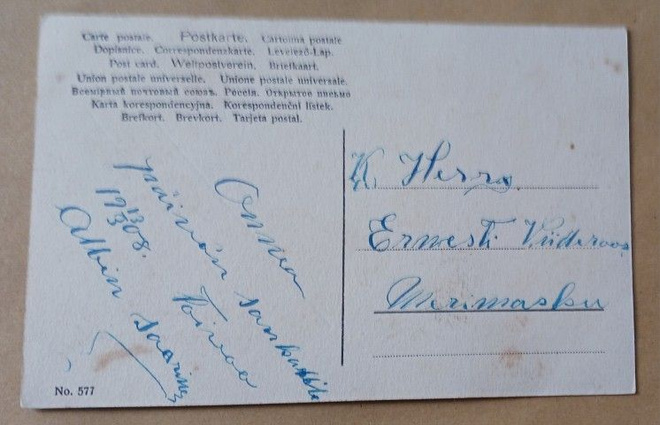 Carte postale. Postkarte. Cartolina postale
Dopisnice. Correspondenzkarte. Levelező-Lap.
Post card. Weltpostverein. Briefkaart.
Union postale universelle. Unione postale universale.
Всемірный почтовый союзъ. Россія. Открытое письмо
Karta korespondencyjna. Korespondenční lístek.
Brefkort. Brevkort. Tarjeta postal.
Onnea
päivän sankarille
Toivoo
19 13/3 08.
Albin Saarinen
K Herra
Ernesti
Merimasku
No. 577